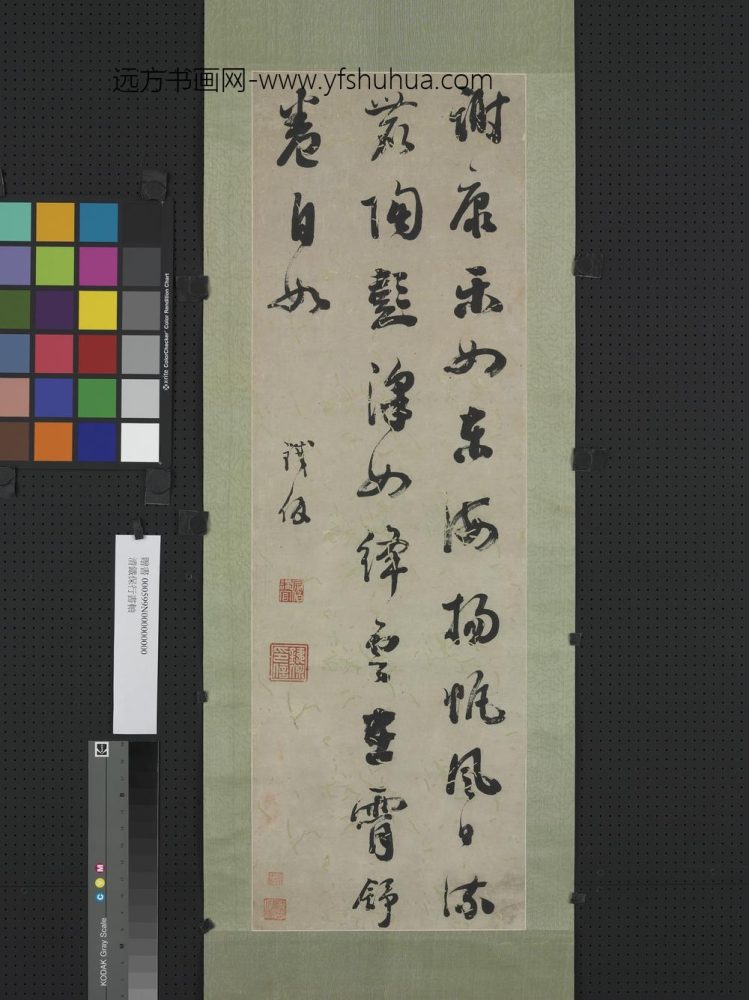 远方书画网-www.yfshuhua.com
謝康樂如東海揚帆風日流
麗陶彭澤如絳雲在霄舒
卷自如
鐵保
贈書 000599N000000000
清鐵保行書軸
x-rite ColorChecker Color Rendition Chart
KODAK Gray Scale
C Y M